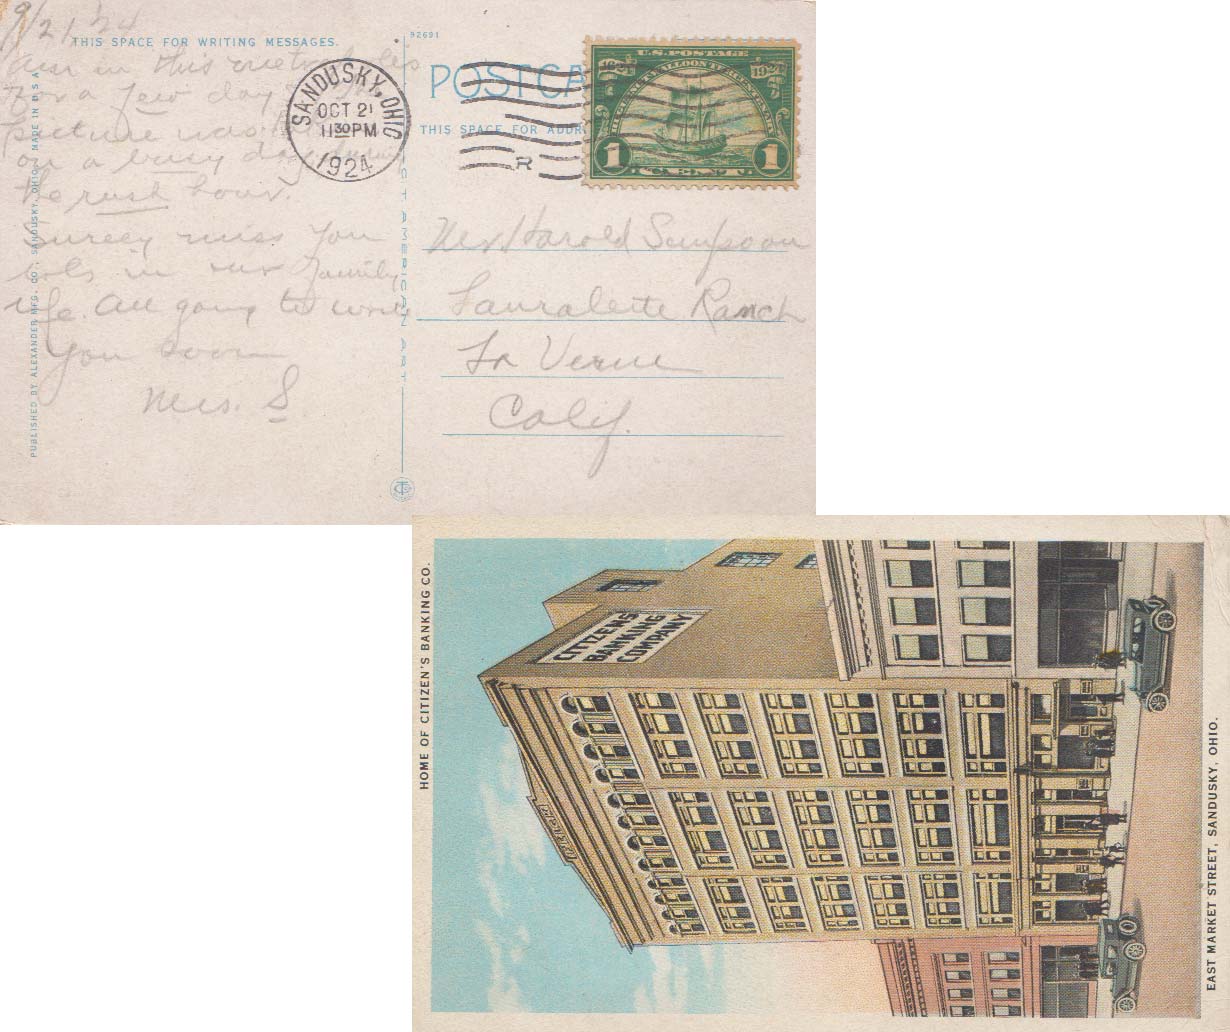 9/21/24
THIS SPACE FOR WRITING MESSAGES.
Am in this metropolis
for a few days
picture was
on a busy day during
the rush hour.
Surely miss you
in our family
life. All going to write
you soon
Mrs. S
PUBLISHED BY ALEXANDER MFG. CO., SANDUSKY, OHIO. MADE IN U S A
SANDUSKY, OHIO
OCT 21
11 30 PM
1924
92691
POSTCA
THIS SPACE FOR ADDR
R
U.S. POSTAGE
1624 1924
HUGUENOT WALLOON TERCENTENARY
1 CENT 1
Harold Sampson
Ranch
La Verne
Calif.
HOME OF CITIZEN'S BANKING CO.
CITIZENS
BANKING
COMPANY
EAST MARKET STREET, SANDUSKY, OHIO.